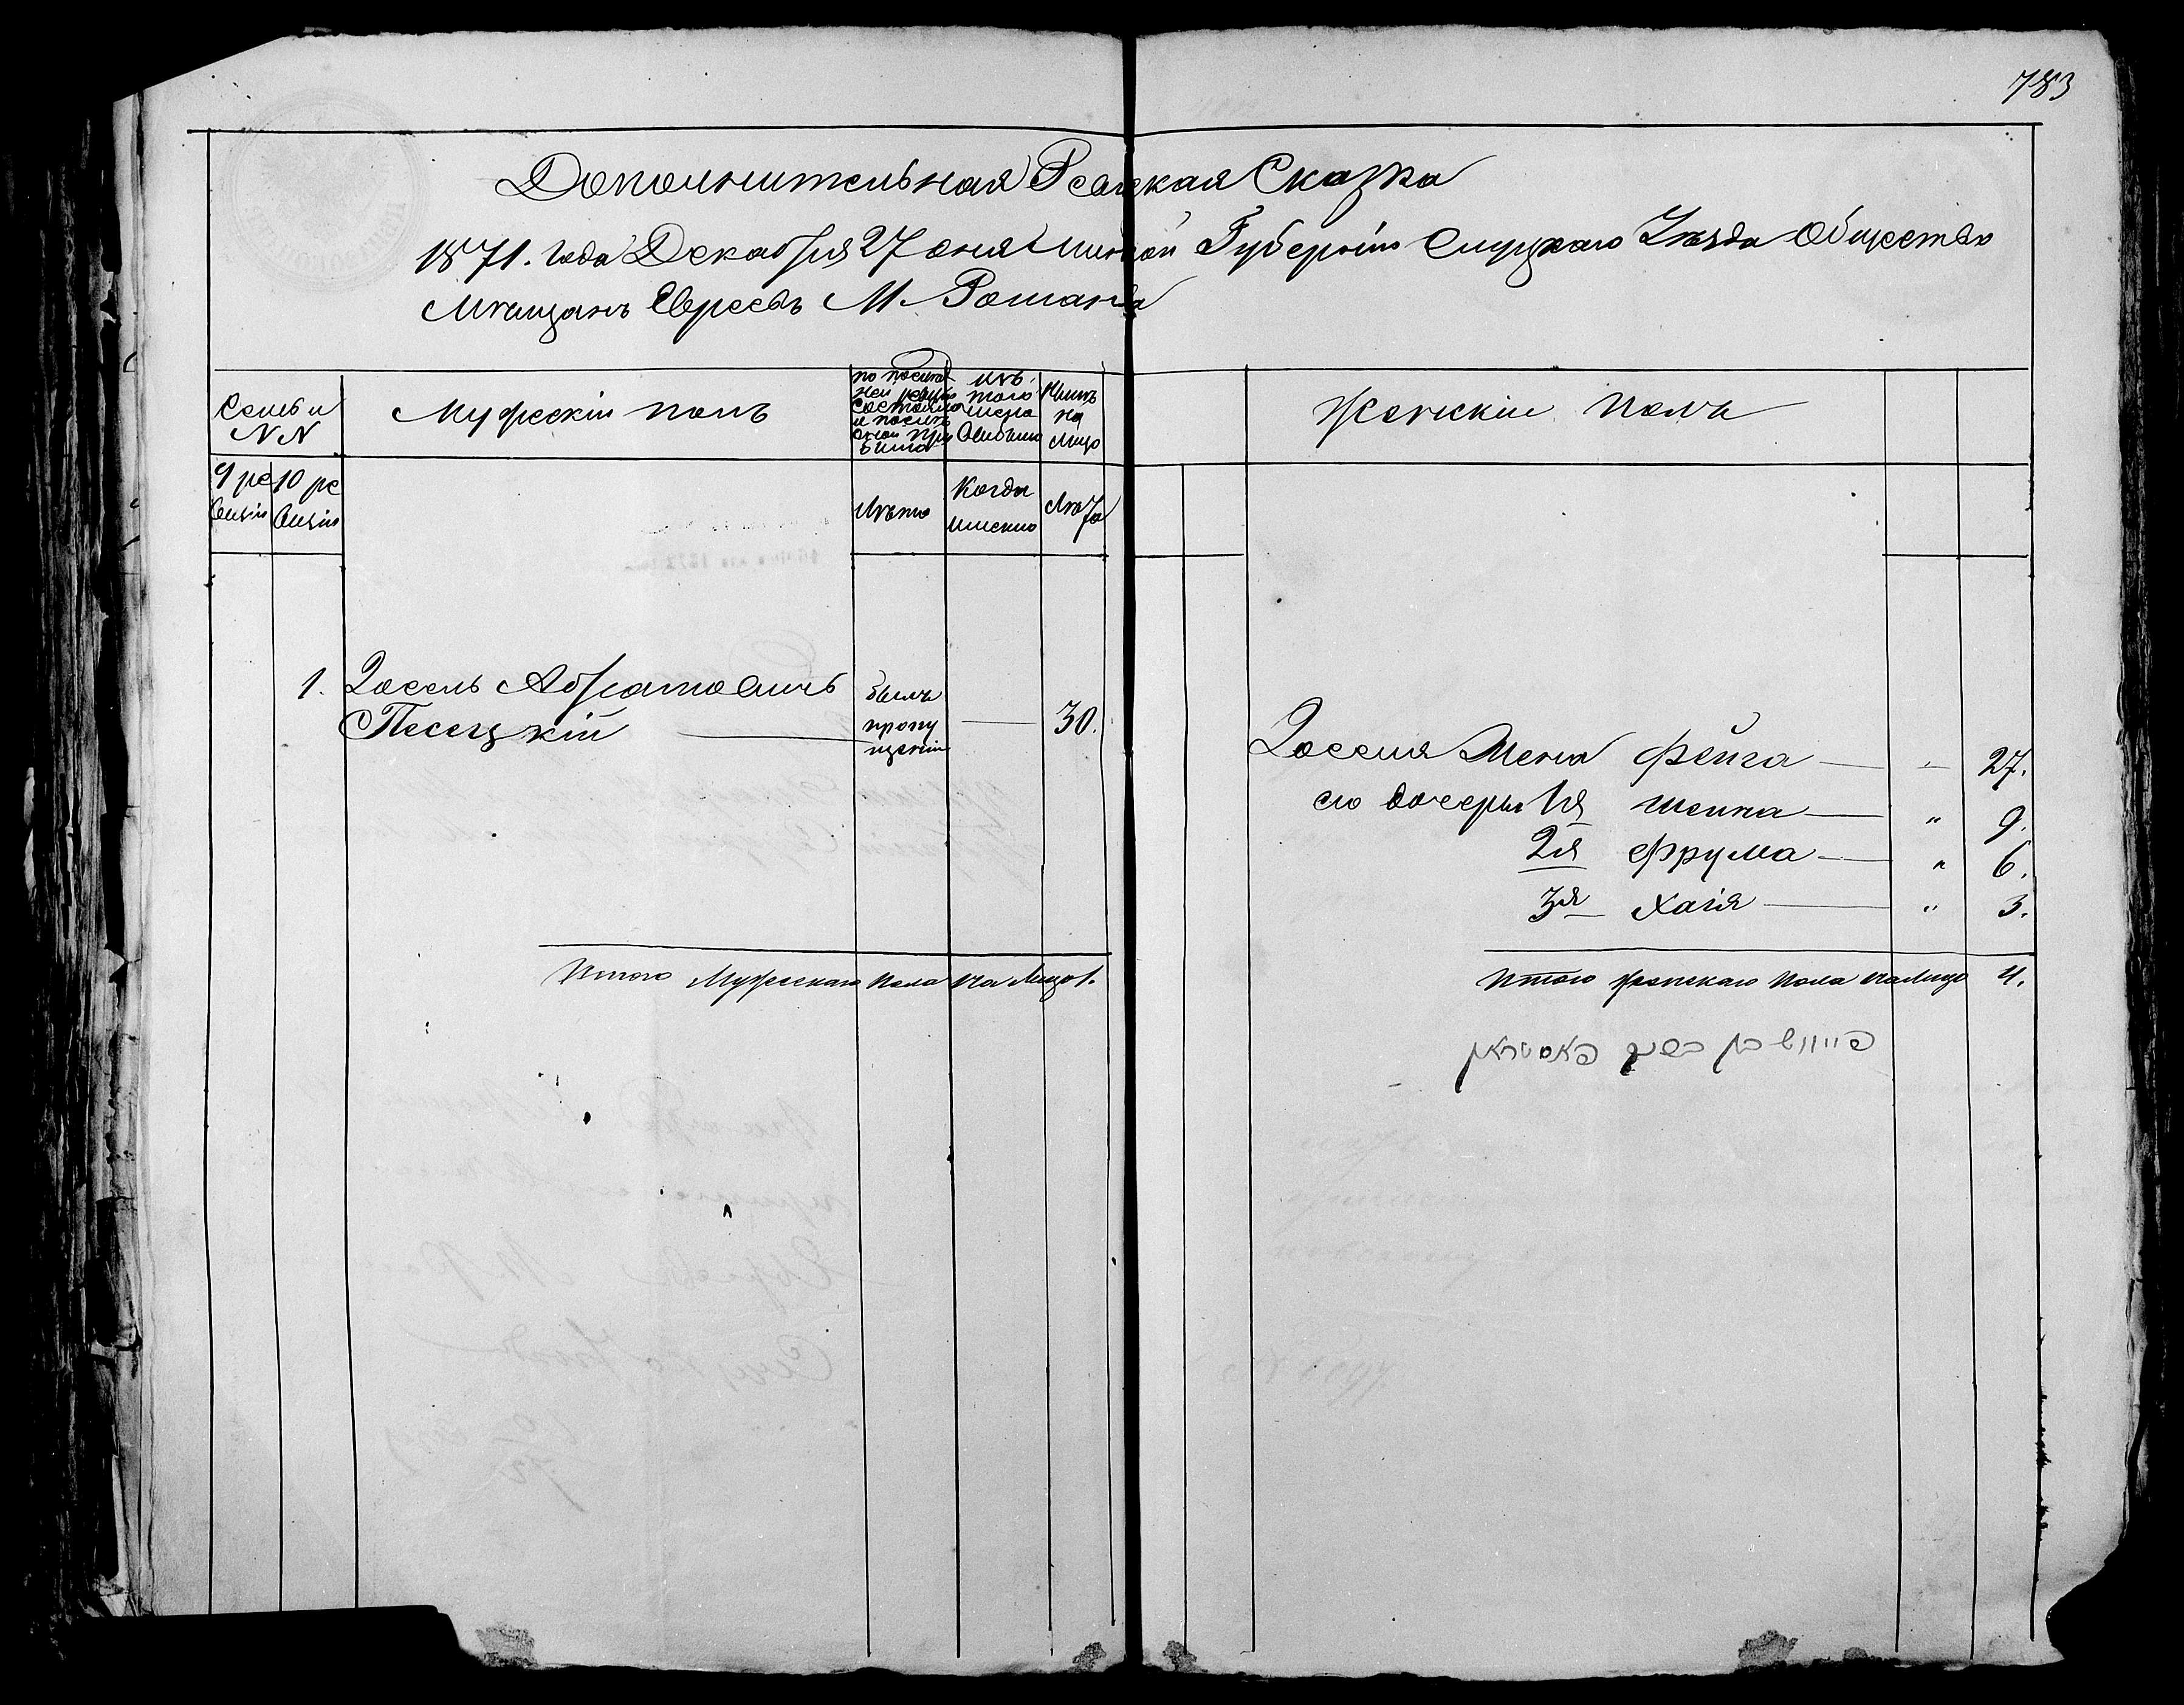 783
Дополнительная Ревизская Сказка
1871. Года Декабря 27 дня Минской Губерніи Слуцкаго Уезда Общества
Мѣщанъ Евреевъ М. Романова
Семьи
NN
Мужескій полъ
по послѣд
ней ревизіи
состояло
и послѣ
оной при
было
изъ
того
числа
выбыло
Нынѣ
на
лицо
Женскій полъ
9 ре
визіи
10 ре
визіи
Лѣта
Когда
именно
Лѣта
1. Іосель Абрамовичъ
Песецкій
былъ
пропу
щенъ
— 30.
Іоселя жена Фейга — " 27.
его дочери 1я Шейна — " 9.
2я Фрума — " 6.
3я Хаія — " 3.
Итого Мужескаго пола на лицо 1.
Итого женскаго пола на лицо 4.